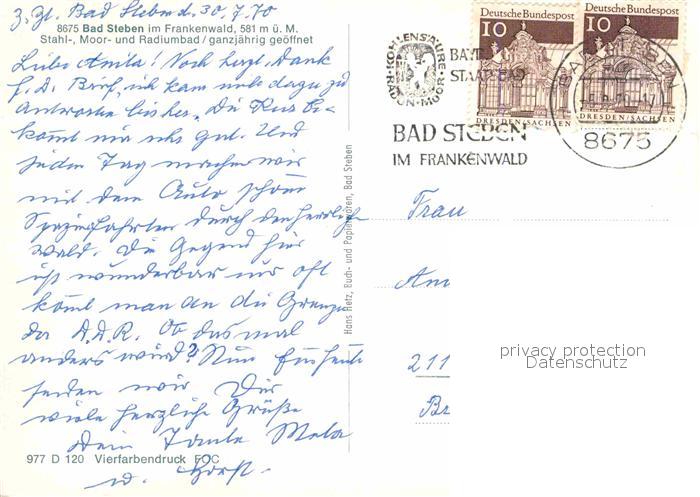 z. Zt. Bad Steben d. 30.7.70
8675 Bad Steben im Frankenwald, 581 m ü. M.
Stahl-, Moor- und Radiumbad / ganzjährig geöffnet
Liebe Noch herzl. Dank
f. D. Brief, ich kam noch dazu zu
antworten bisher. Die Kur be-
kommt mir sehr gut. Und
jeden Tag machen wir
mit dem Auto schöne
Spazierfahrten durch den herrlichen
Wald. Die Gegend hier
ist wunderbar nur oft
kommt man an die Grenze
da D.D.R. Ob das mal
anders wird? Nun
senden wir Dir
viele herzliche Grüße
Dein Tante Meta
u. Horst.
977 D 120 Vierfarbendruck FOC
Hans Retz, Buch- und Papierwaren, Bad Steben
KOHLENSÄURE
RADON-MOOR
BAYR.
STAATSBAD
BAD STEBEN
IM FRANKENWALD
Deutsche Bundespost
10
DRESDEN/SACHSEN
Deutsche Bundespost
10
DRESDEN/SACHSEN
BAD STEBEN
8675
Frau
Am
211
Br
privacy protection
Datenschutz